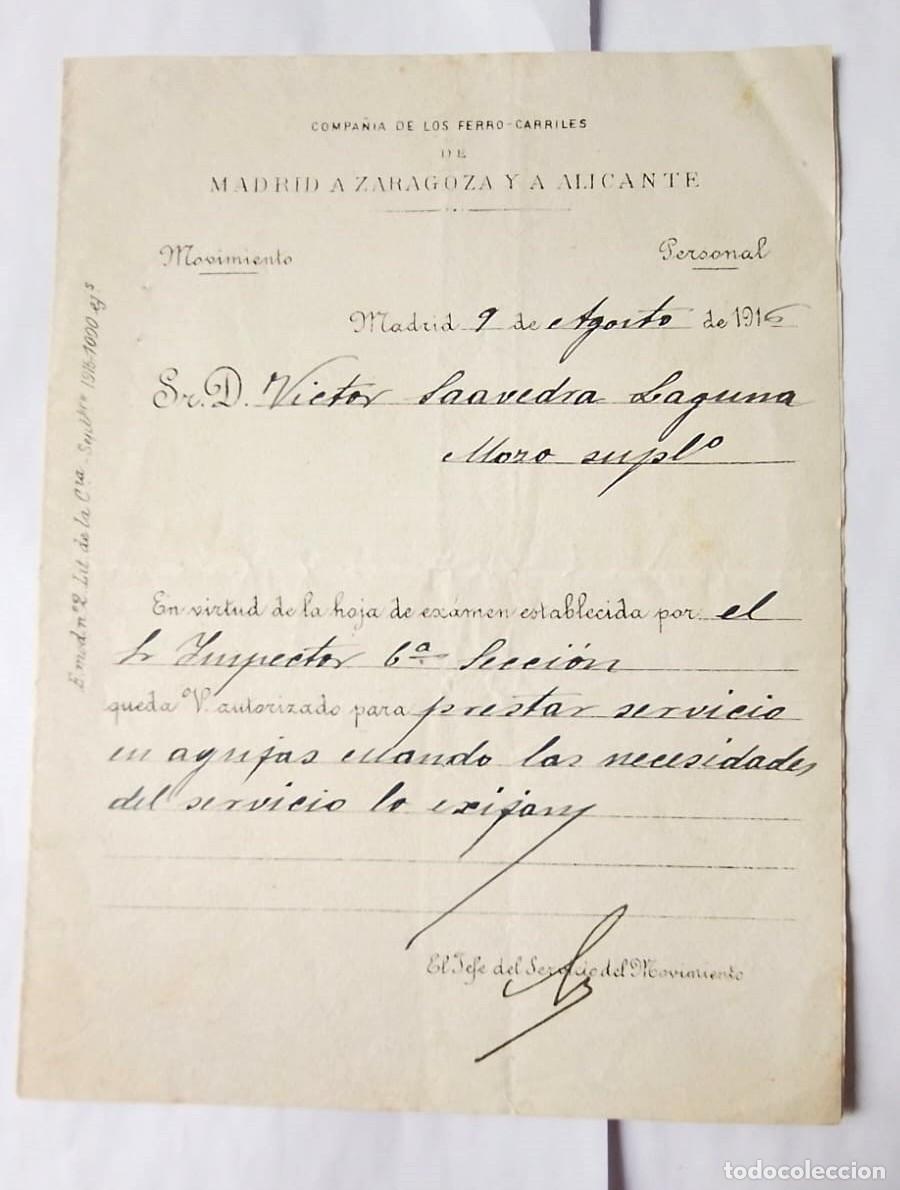 COMPAÑIA DE LOS FERRO-CARRILES
DE
MADRID A ZARAGOZA Y A ALICANTE
Movimiento
Personal
Madrid 9 de Agosto de 1916
Sr. D. Victor Saavedra Laguna
Mozo suplº
En virtud de la hoja de exámen establecida por el
Sr Inspector 6ª Sección
queda V. autorizado para prestar servicio
en agujas cuando las necesidades
del servicio lo exijan
El Jefe del Servicio del Movimiento
E. mod nº 2 Lit. de la Cía - Sepbre 1915-1000 ejs
todocoleccion